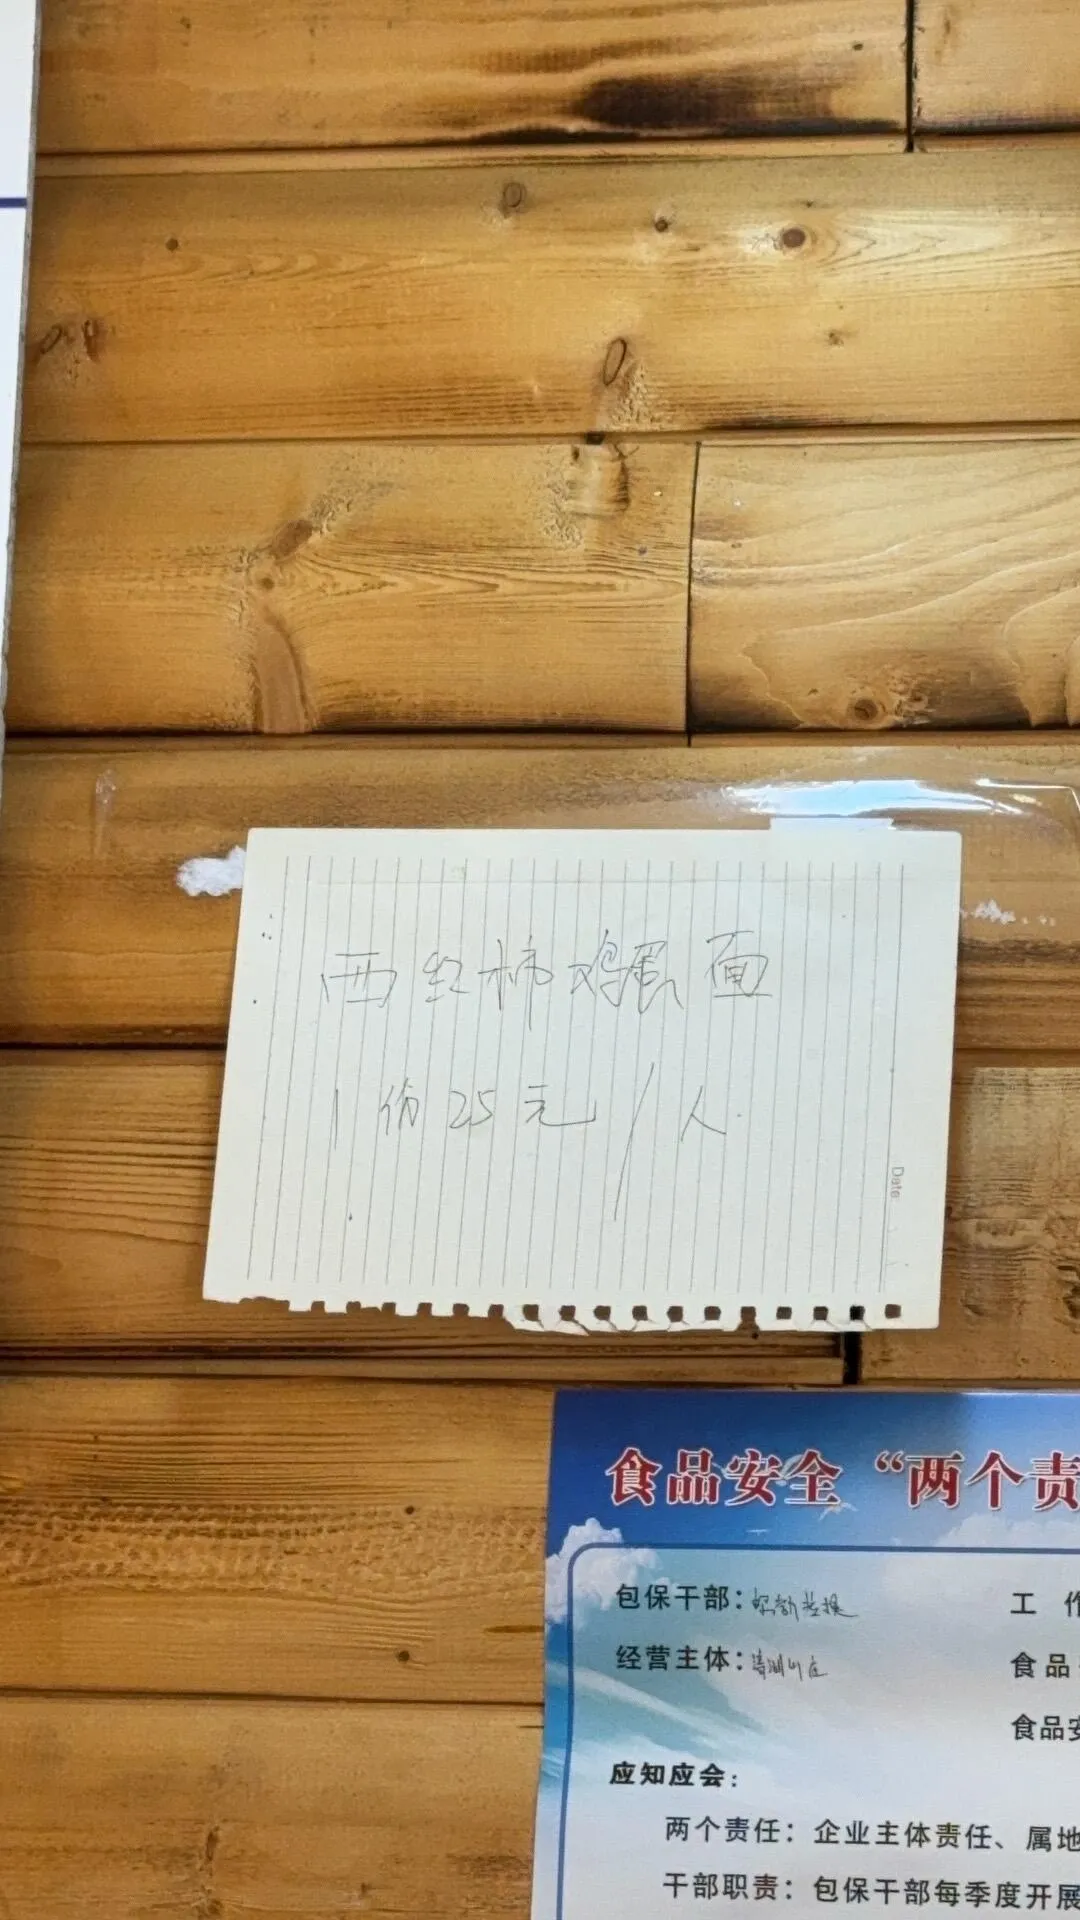 西红柿鸡蛋面
1份25元/人.
Date
食品安全“两个责
包保干部：
工 作
经营主体：
食品
食品安
应知应会：
两个责任：企业主体责任、属地
干部职责：包保干部每季度开展